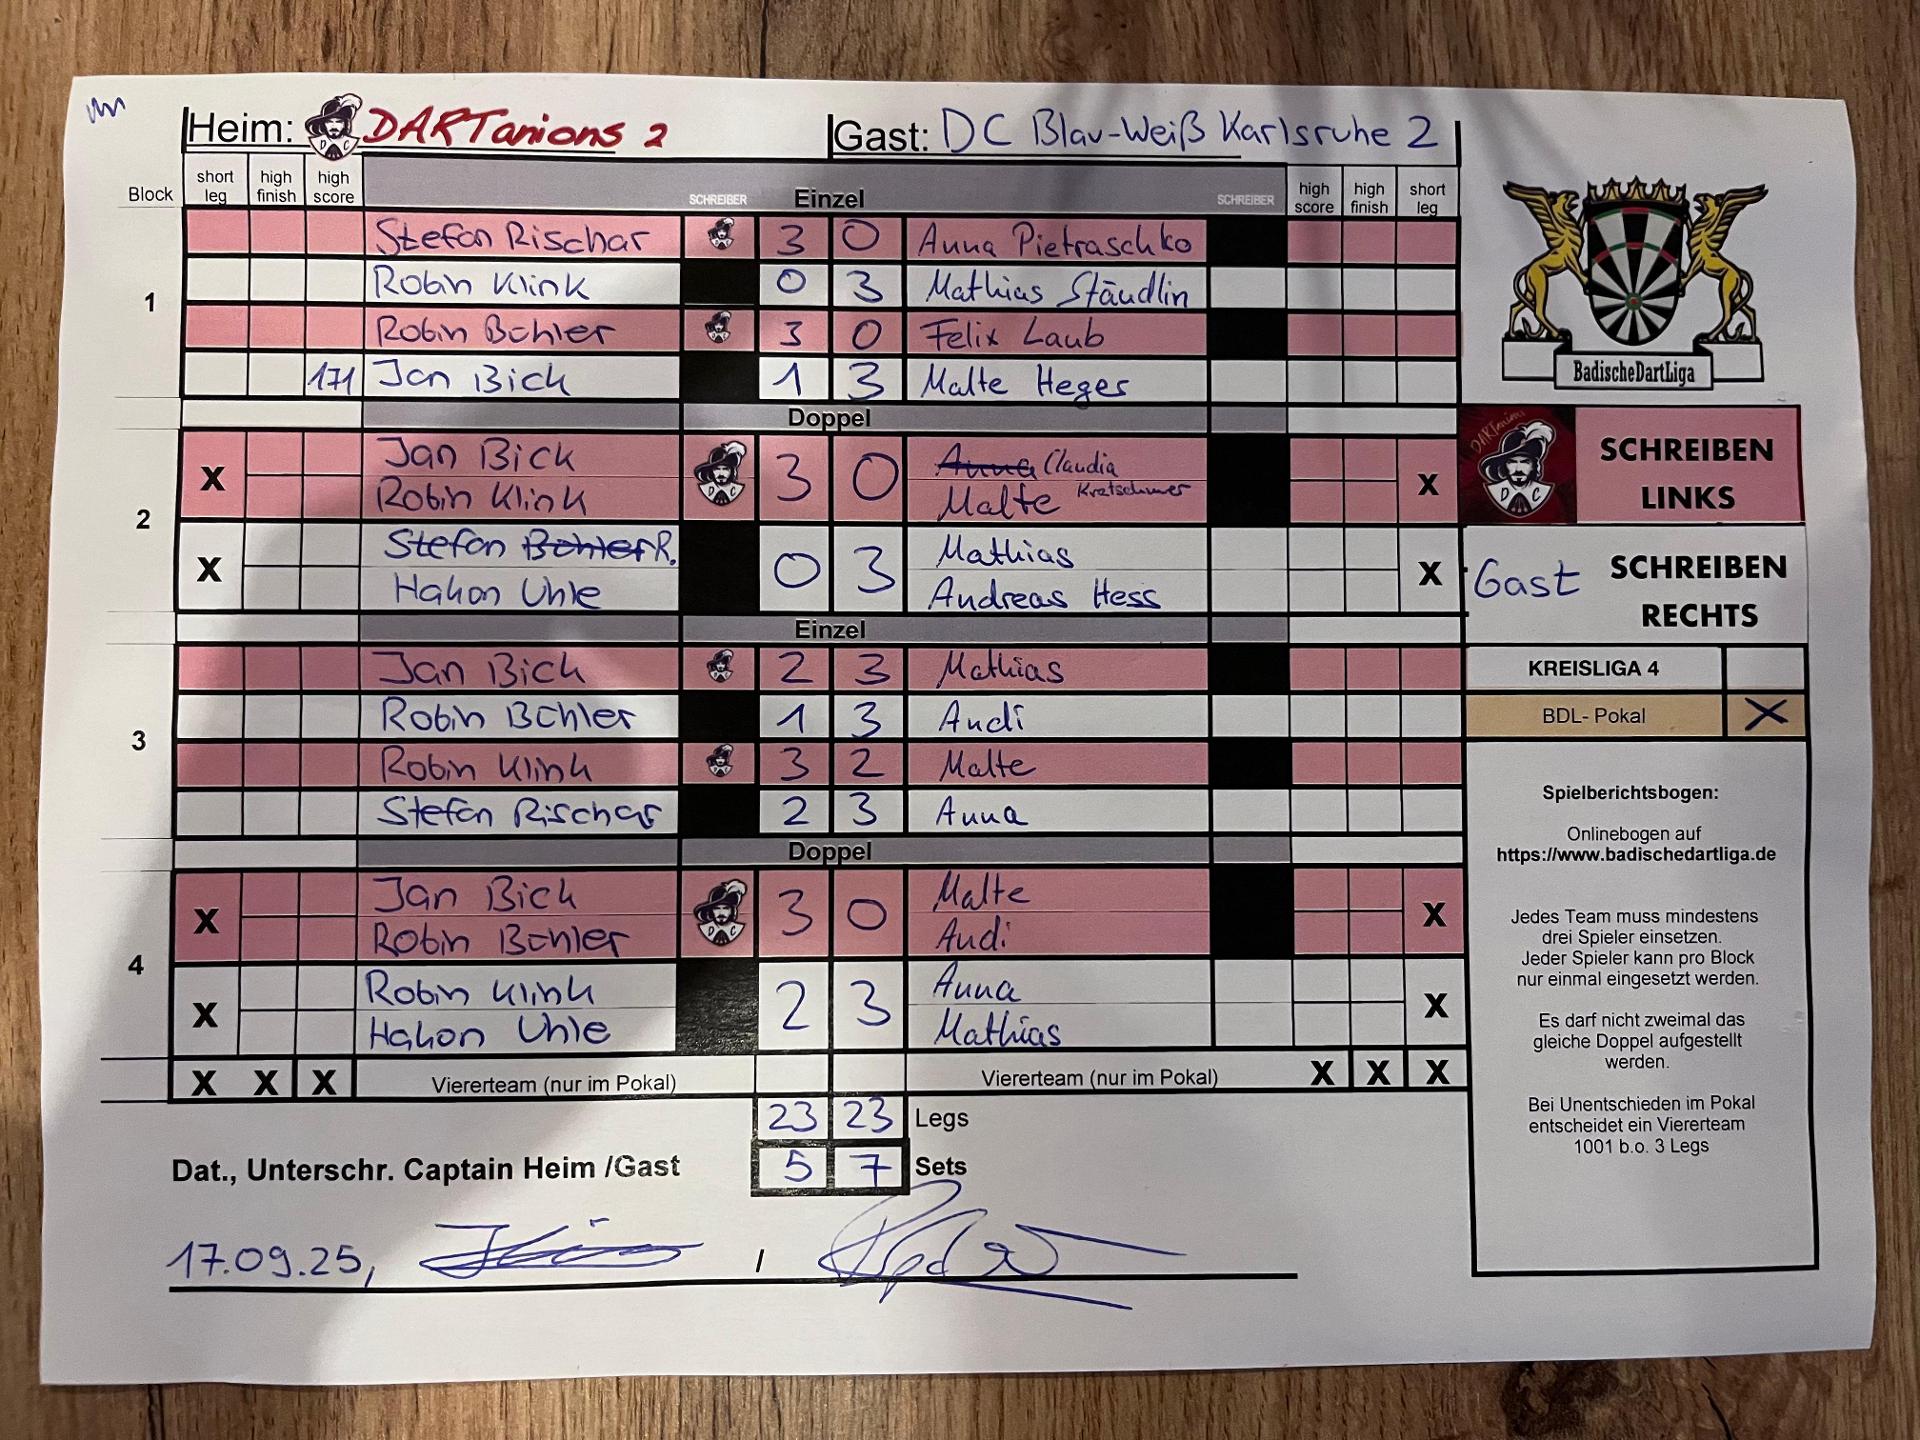 Heim: DARTanions 2 Gast: DC Blau-Weiß Karlsruhe 2
Block short leg high finish high score SCHREIBER Einzel SCHREIBER high score high finish short leg
1
Stefan Rischar 3 0 Anna Pietraschko
Robin Klink 0 3 Mathias Stäudlin
Robin Bohler 3 0 Felix Laub
171 Jan Bick 1 3 Malte Heger
Doppel
2
X Jan Bick 3 0 Anna Claudia Kretschmer X
Robin Klink Malte
X Stefan Bohler R. 0 3 Mathias X
Hakon Uhle Andreas Hess
Einzel
3
Jan Bick 2 3 Mathias
Robin Bohler 1 3 Andi
Robin Klink 3 2 Malte
Stefan Rischar 2 3 Anna
Doppel
4
X Jan Bick 3 0 Malte X
Robin Bohler Andi
X Robin Klink 2 3 Anna X
Hakon Uhle Mathias
X X X Viererteam (nur im Pokal) Viererteam (nur im Pokal) X X X
23 23 Legs
Dat., Unterschr. Captain Heim /Gast 5 7 Sets
17.09.25, /
BadischeDartLiga
DARTanions
D C
SCHREIBEN
LINKS
Gast SCHREIBEN
RECHTS
KREISLIGA 4
BDL- Pokal X
Spielberichtsbogen:
Onlinebogen auf
https://www.badischedartliga.de
Jedes Team muss mindestens
drei Spieler einsetzen.
Jeder Spieler kann pro Block
nur einmal eingesetzt werden.
Es darf nicht zweimal das
gleiche Doppel aufgestellt
werden.
Bei Unentschieden im Pokal
entscheidet ein Viererteam
1001 b.o. 3 Legs